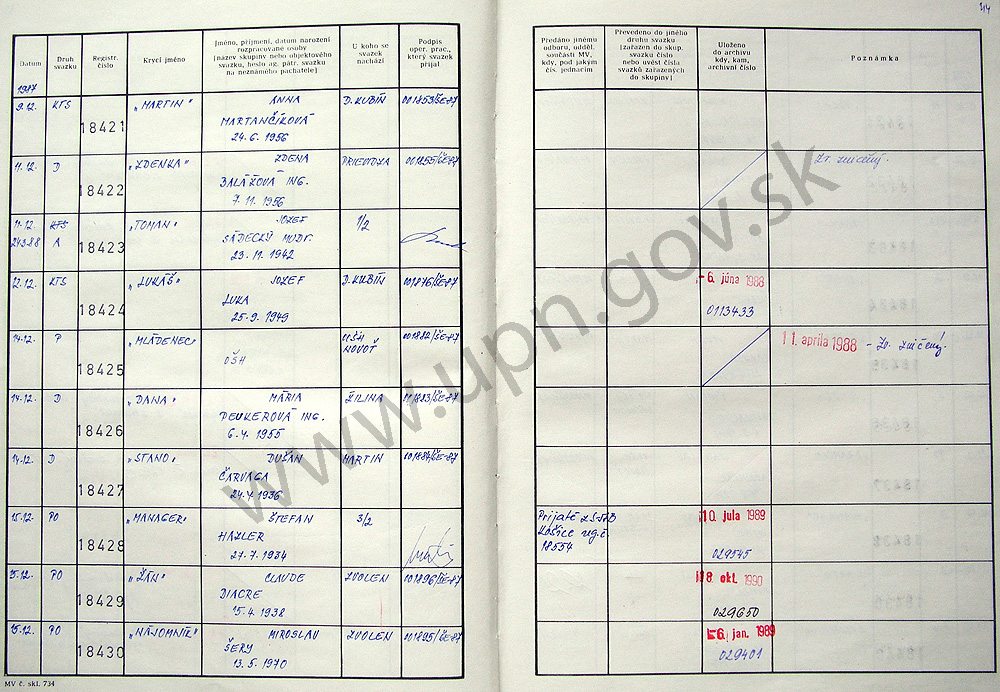 Datum
Druh svazku
Registr. číslo
Krycí jméno
Jméno, příjmení, datum narození
rozpracované osoby
[název skupiny nebo objektového
svazku, heslo ag. pátr. svazku
na neznámého pachatele]
U koho se
svazek
nachází
Podpis
oper. prac.,
který svazek
přijal
Předáno jinému
odboru, odděl.
součásti MV,
kdy, pod jakým
čís. jednacím
Převedeno do jiného
druhu svazku
[zařazen do skup.
svazku číslo
nebo uvést čísla
svazků zařazených
do skupiny]
Uloženo
do archivu
kdy, kam,
archivní číslo
Poznámka
1987
9.12. KTS 18421 "MARTIN" ANNA D. KUBÍN 001853/ŠE-87
MARTANČÍKOVÁ
24.6.1956
11.12. D 18422 "ZDENKA" ZDENA PRIEVIDZA 001855/ŠE-87 Zv. zničený.
BALÁŽOVÁ ING.
7.11.1956
11.12. KTS 18423 "TOMAN" JOZEF 1/2
24.3.88 A SÁDECKÝ MUDr.
23.11.1942
12.12. KTS 18424 "LUKÁŠ" JOZEF D. KUBÍN 001876/ŠE-87 -6. júna 1988
LUKA
25.9.1949 0113433
14.12. P 18425 "MLÁDENEC" OŠH NOVOŤ 001882/ŠE-87 11. apríla 1988 - Zv. zničený!
14.12. D 18426 "DANA" MÁRIA ŽILINA 001883/ŠE-87
PEUKEROVÁ ING.
6.4.1955
14.12. D 18427 "STANO" DUŠAN MARTIN 001884/ŠE-87
ČARVAGA
24.4.1936
15.12. PO 18428 "MANAGER" ŠTEFAN 3/2 Prijaté 10 jula 1989
HAZLER Košice reg.č.
27.7.1934 18554 029545
15.12. PO 18429 "ŽÁN" CLAUDE ZVOLEN 001896/ŠE-87 18 okt. 1990
DIACRE
15.4.1938 029650
15.12. PO 18430 "NÁJOMNÍK" MIROSLAV ZVOLEN 001895/ŠE-87 -6. jan. 1989
ŠERY
13.5.1970 029401
MV č. skl. 734
www.upn.gov.sk